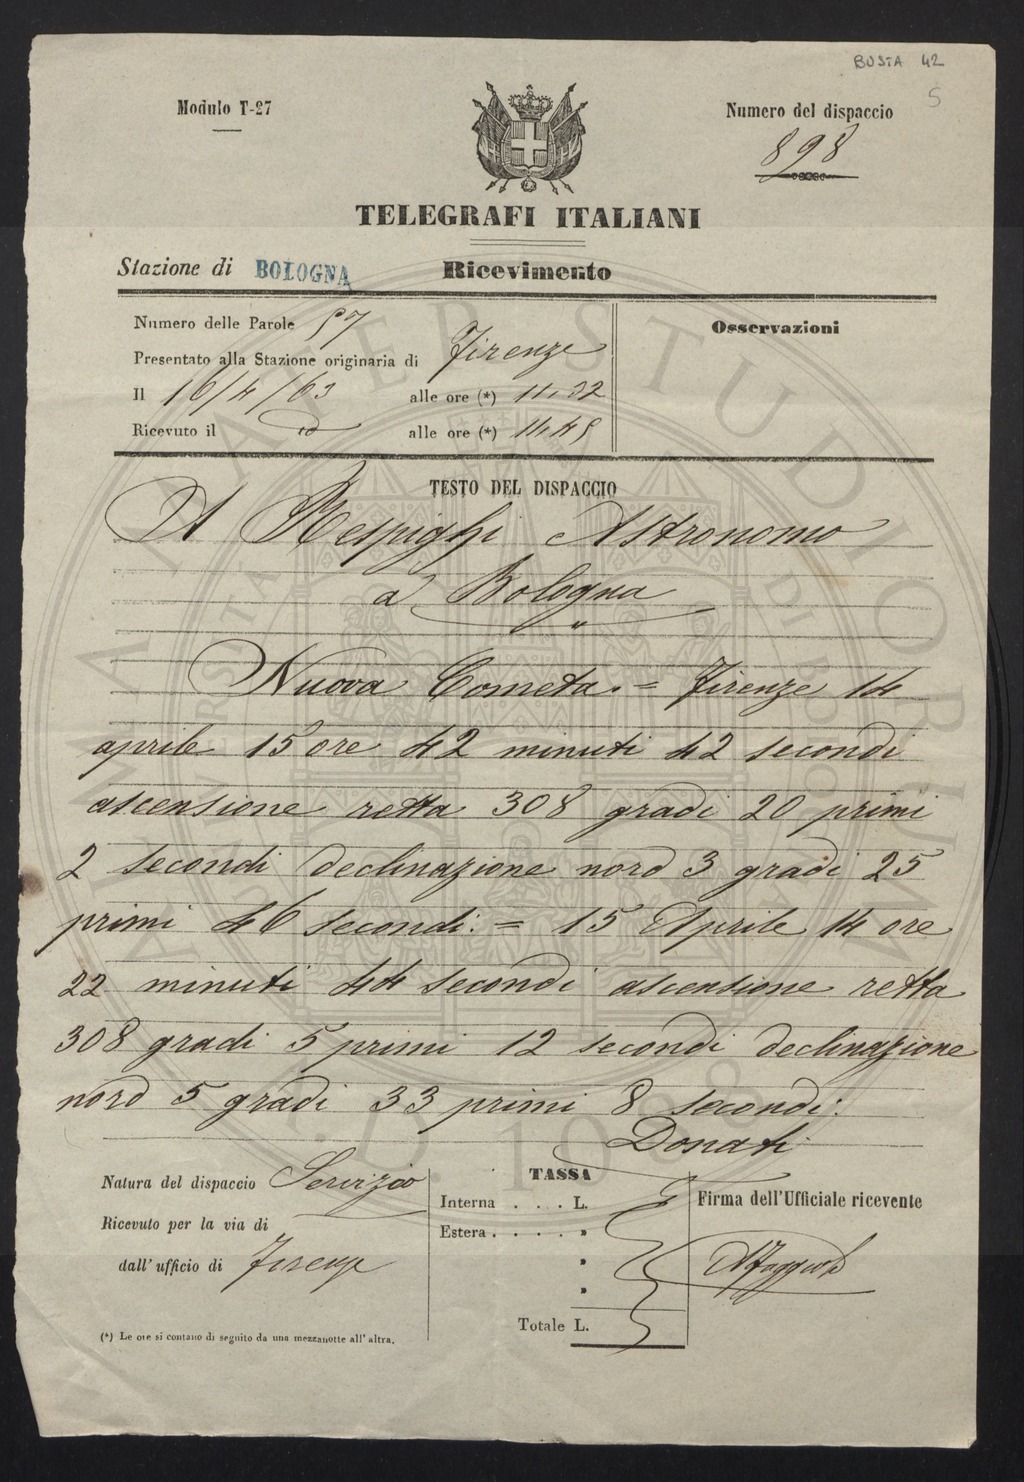 BUSTA 42
5
Modulo T-27
Numero del dispaccio
898
TELEGRAFI ITALIANI
Stazione di BOLOGNA
Ricevimento
Numero delle Parole 57
Presentato alla Stazione originaria di Firenze
Il 16/4/63 alle ore (*) 11.22
Ricevuto il do alle ore (*) 11.45
Osservazioni
TESTO DEL DISPACCIO
A Respighi Astronomo
a Bologna
"
Nuova Cometa. = Firenze 14
aprile 15 ore 42 minuti 42 secondi
ascensione retta 308 gradi 20 primi
2 secondi declinazione nord 3 gradi 25
primi 46 secondi. = 15 Aprile 14 ore
22 minuti 44 secondi ascensione retta
308 gradi 5 primi 12 secondi declinazione
nord 5 gradi 33 primi 8 secondi.
Donati
Natura del dispaccio Servizio
Ricevuto per la via di
dall' ufficio di Firenze
(*) Le ore si contano di seguito da una mezzanotte all' altra.
TASSA
Interna . . . . L.
Estera . . . . . »
»
»
Totale L.
Firma dell'Ufficiale ricevente
ALMA MATER STUDIORUM
A.D. 1088